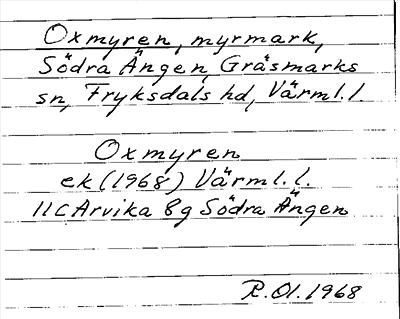 Oxmyren, myrmark,
Södra Ängen, Gräsmarks
sn, Fryksdals hd, Värml.l.
Oxmyren
ek (1968) Värml.l.
11C Arvika 8g Södra Ängen
R.Ol.1968